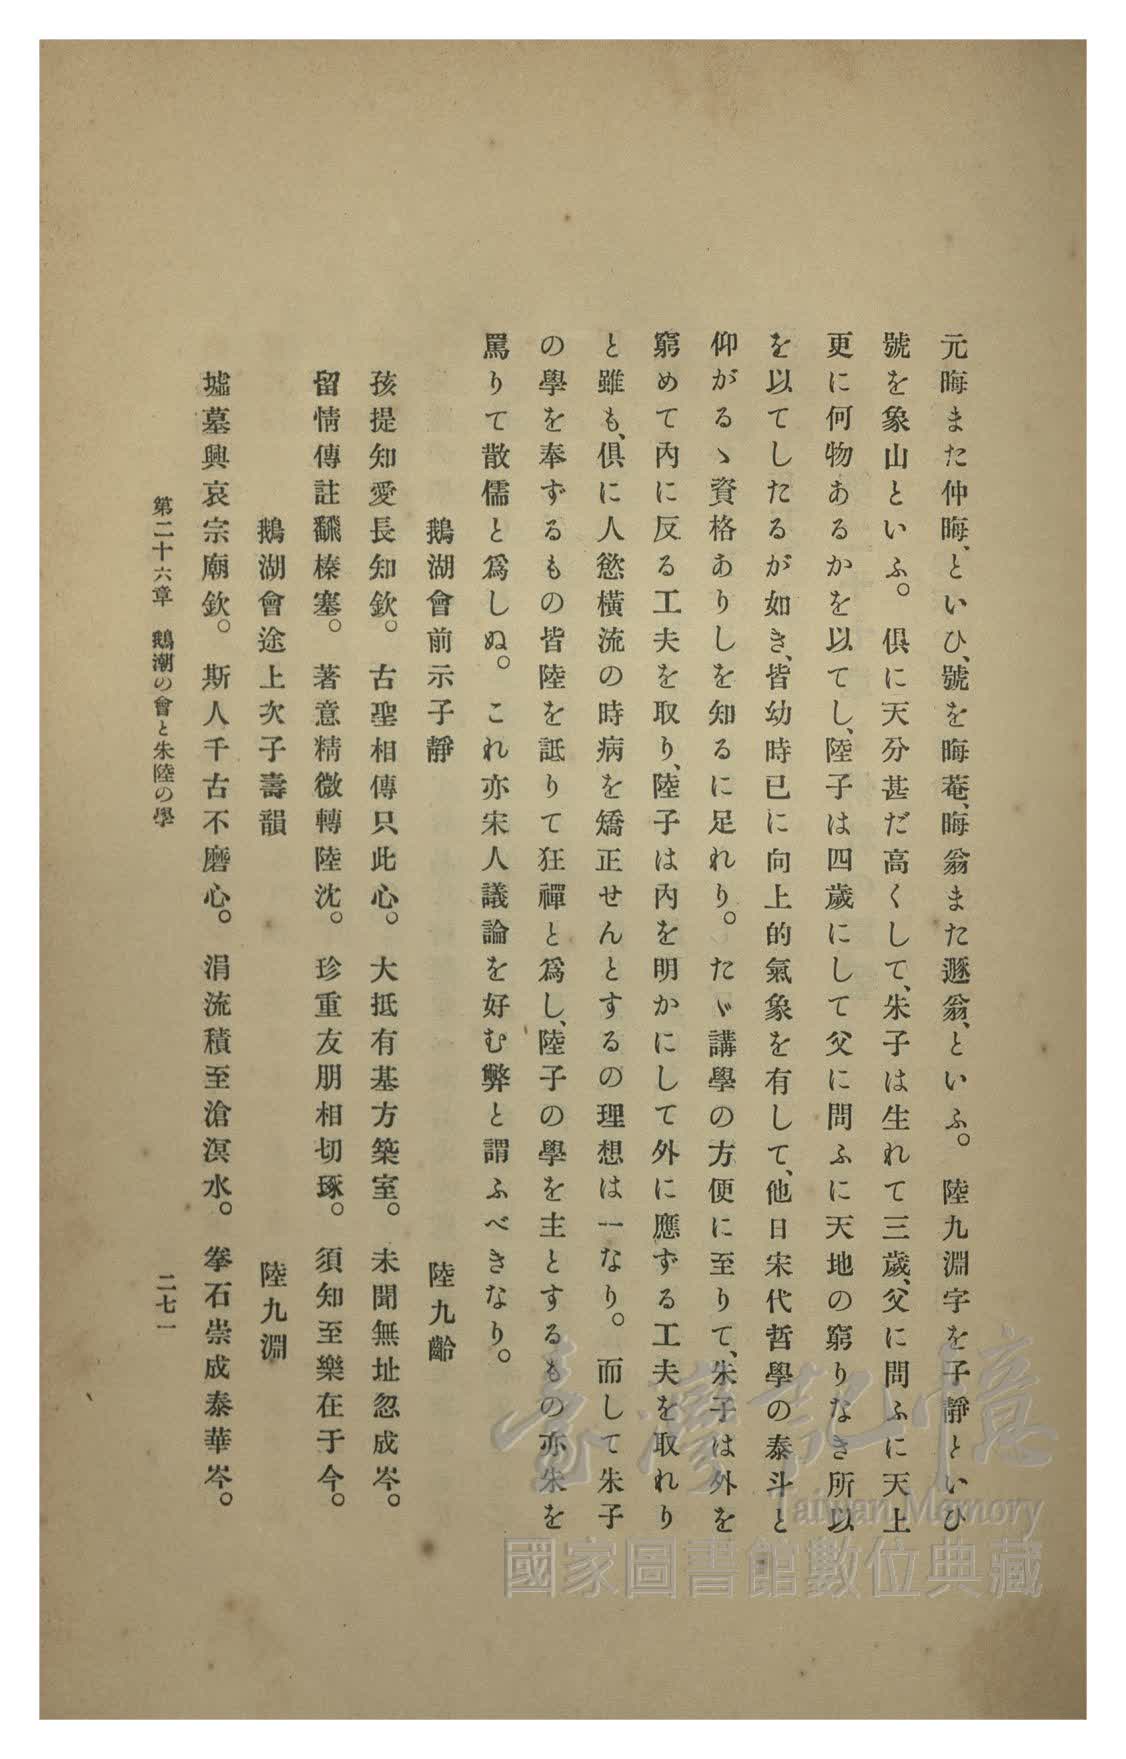 元晦また仲晦、といひ、號を晦菴、晦翁また遯翁、といふ。 陸九淵字を子靜といひ
號を象山といふ。 俱に天分甚だ高くして、朱子は生れて三歲、父に問ふに天上
更に何物あるかを以てし、陸子は四歲にして父に問ふに天地の窮りなき所以
を以てしたるが如き、皆幼時已に向上的氣象を有して、他日宋代哲學の泰斗と
仰がるゝ資格ありしを知るに足れり。 たゞ講學の方便に至りて、朱子は外を
窮めて內に反る工夫を取り、陸子は內を明かにして外に應ずる工夫を取れり
と雖も、俱に人慾橫流の時病を矯正せんとするの理想は一なり。 而して朱子
の學を奉ずるもの皆陸を詆りて狂禪と爲し、陸子の學を主とするもの亦朱を
罵りて散儒と爲しぬ。 これ亦宋人議論を好む弊と謂ふべきなり。
鵝湖會前示子靜 陸九齡
孩提知愛長知欽。 古聖相傳只此心。 大抵有基方築室。 未聞無址忽成岑。
留情傳註翻榛塞。 著意精微轉陸沈。 珍重友朋相切琢。 須知至樂在于今。
鵝湖會途上次子壽韻 陸九淵
墟墓興哀宗廟欽。 斯人千古不磨心。 涓流積至滄溟水。 拳石崇成泰華岑。
第二十六章 鵝潮の會と朱陸の學 二七一
臺灣記憶
Taiwan Memory
國家圖書館數位典藏